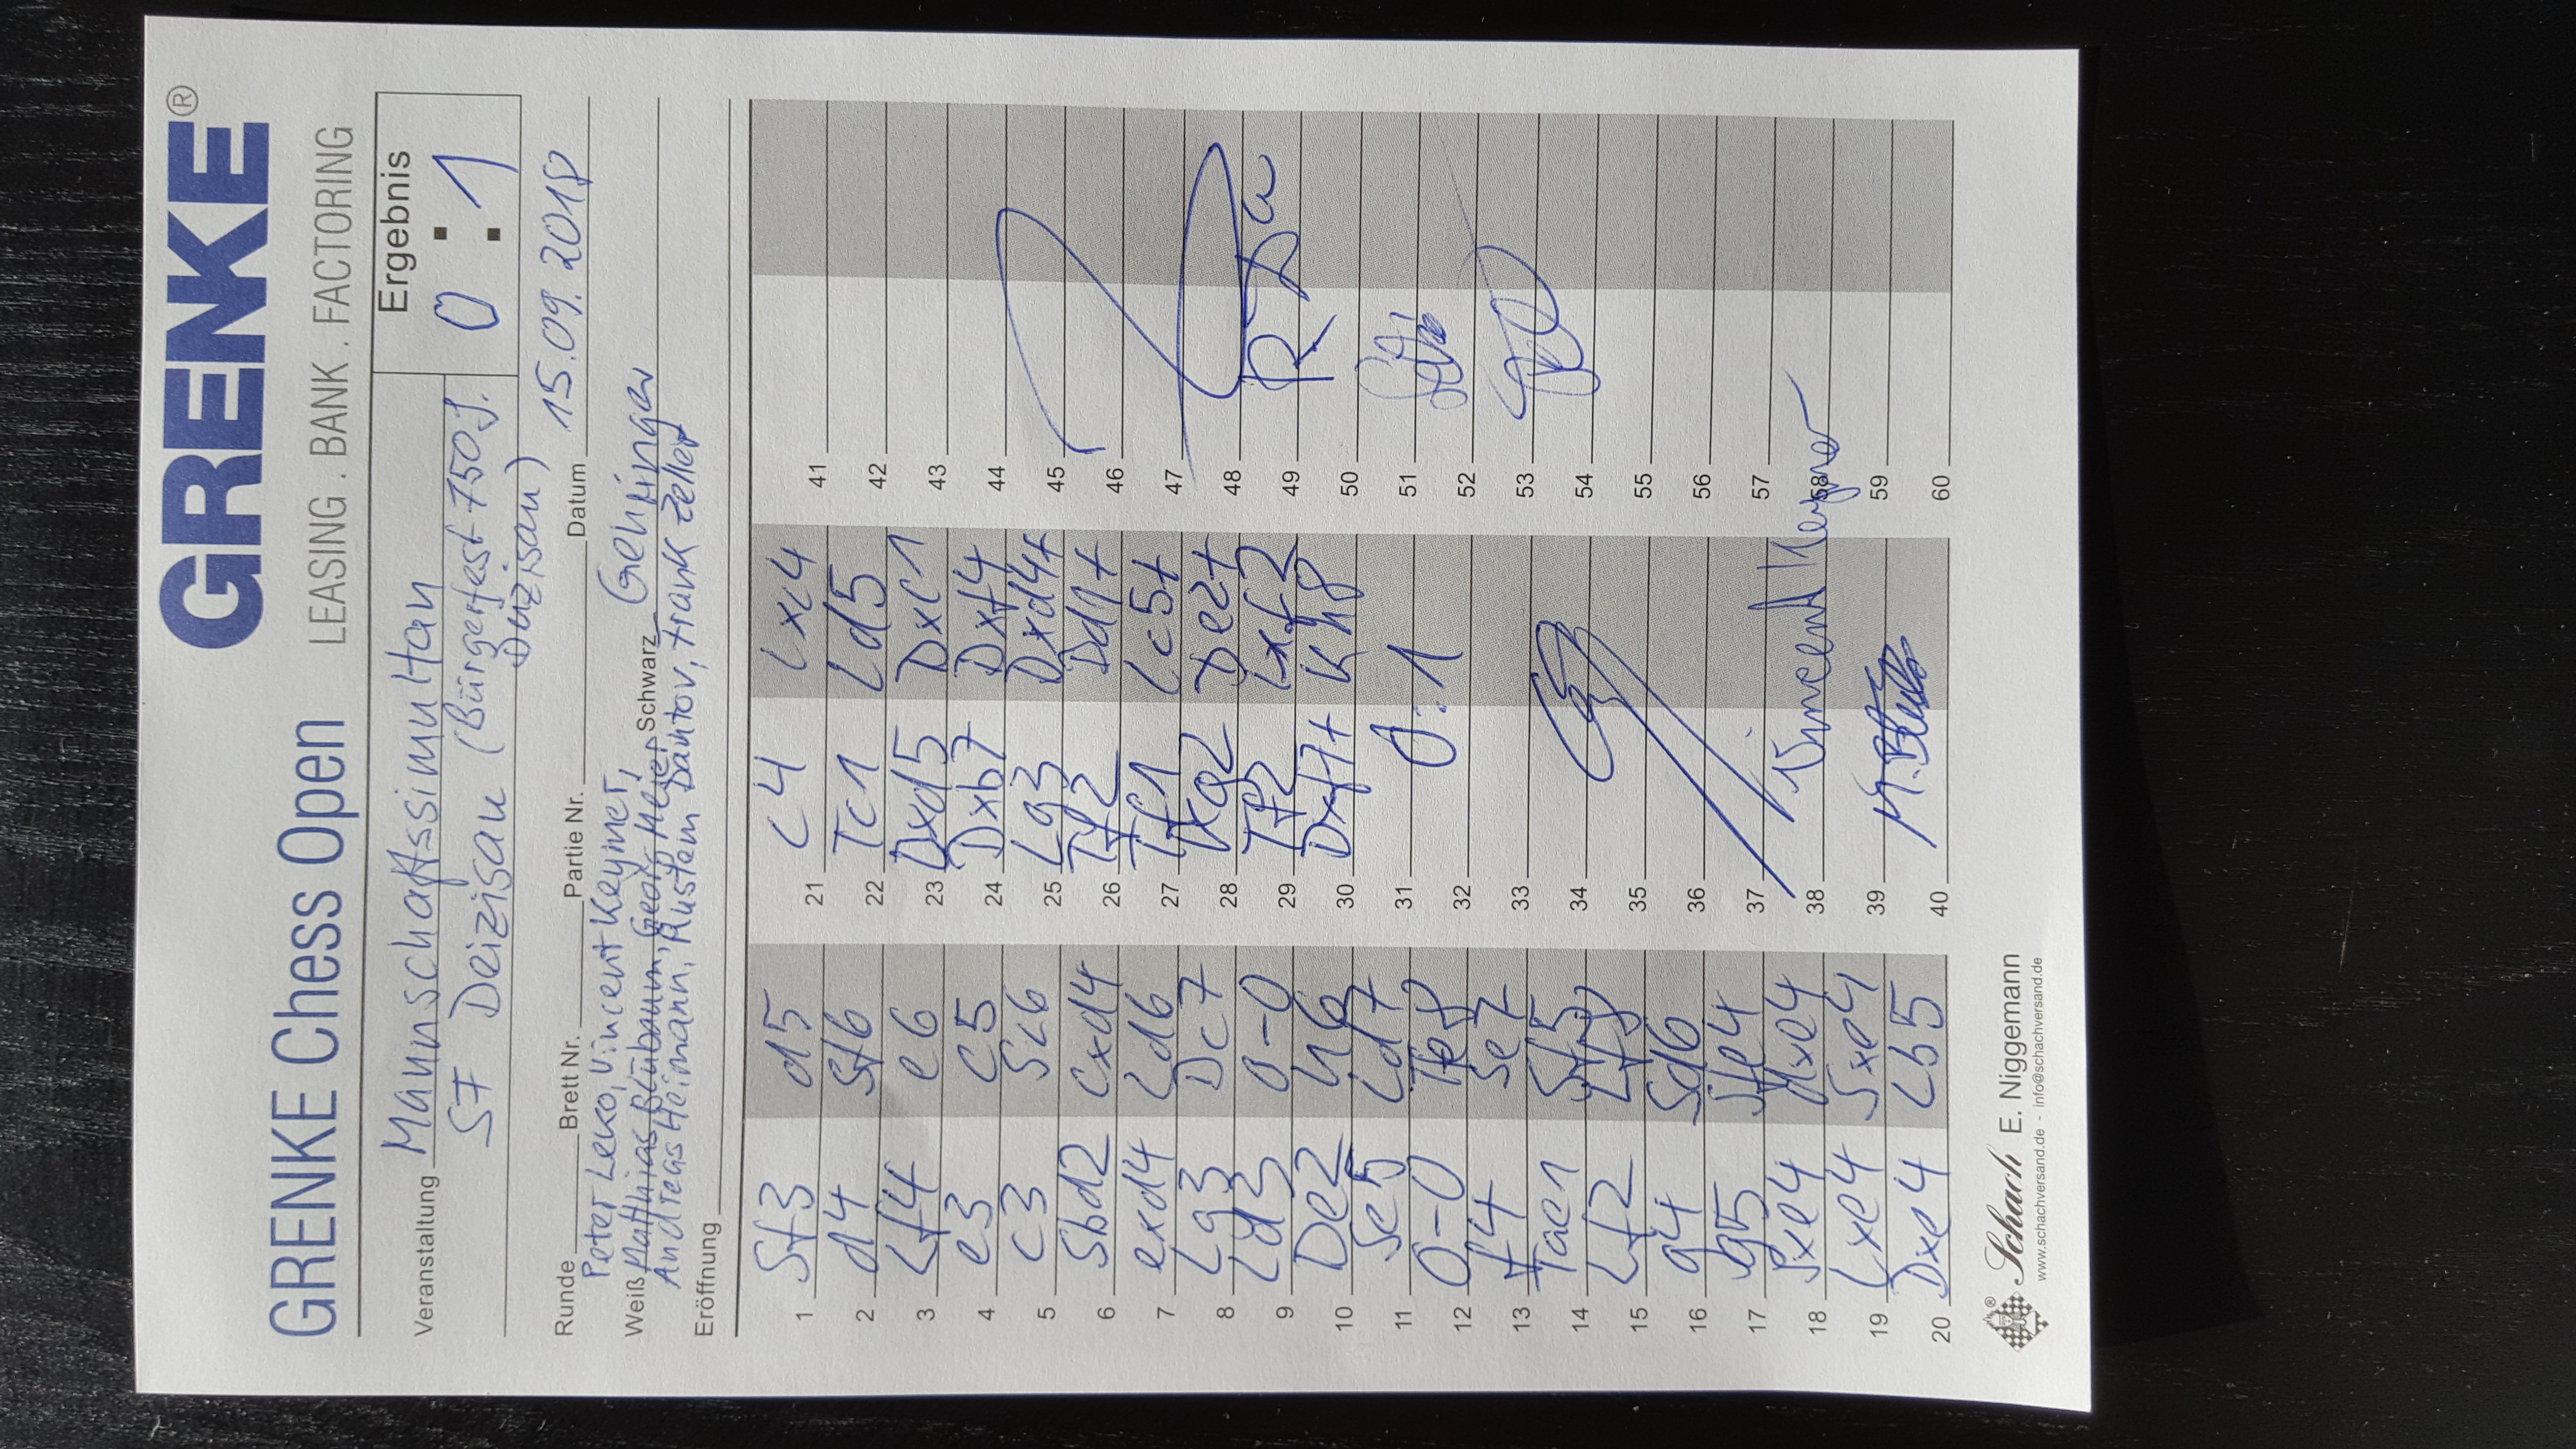 GRENKE Chess Open
GRENKE®
LEASING . BANK . FACTORING
Veranstaltung Mannschaftssimultan
SF Deizisau (Bürgerfest 750 J.
Deizisau)
Ergebnis
0 : 1
Runde Brett Nr. Partie Nr. Datum 15.09.2018
Peter Leko, Vincent Keymer,
Weiß Matthias Blübaum, Georg Meier Schwarz Gehringer
Andreas Heimann, Rustem Dautov, Frank Zeller
Eröffnung
1 Sf3 d5
2 d4 Sf6
3 Lf4 e6
4 e3 c5
5 c3 Sc6
6 Sbd2 cxd4
7 exd4 Ld6
8 Lg3 Dc7
9 Ld3 0-0
10 De2 h6
11 Se5 Ld7
12 0-0 Te8
13 f4 Se7
14 Tae1 Sf5
15 Lf2 Lf8
16 g4 Sd6
17 g5 Sfe4
18 Sxe4 dxe4
19 Lxe4 Sxe4
20 Dxe4 Lb5
21 c4 Lxc4
22 Tc1 Ld5
23 Dxd5 Dxc1
24 Dxb7 Dxf4
25 Lg3 Dxd4+
26 Tf2 Dd1+
27 Tf1 Lc5+
28 Kg2 De2+
29 Tf2 Lxf2
30 Dxf7+ Kh8
31 0:1
32
33
34
35
36
37
38 Vincent Keymer
39 M. Blübaum
40
41
42
43
44
45
46
47
48
49
50
51
52
53
54
55
56
57
58
59
60
® Schach E. Niggemann
www.schachversand.de - info@schachversand.de